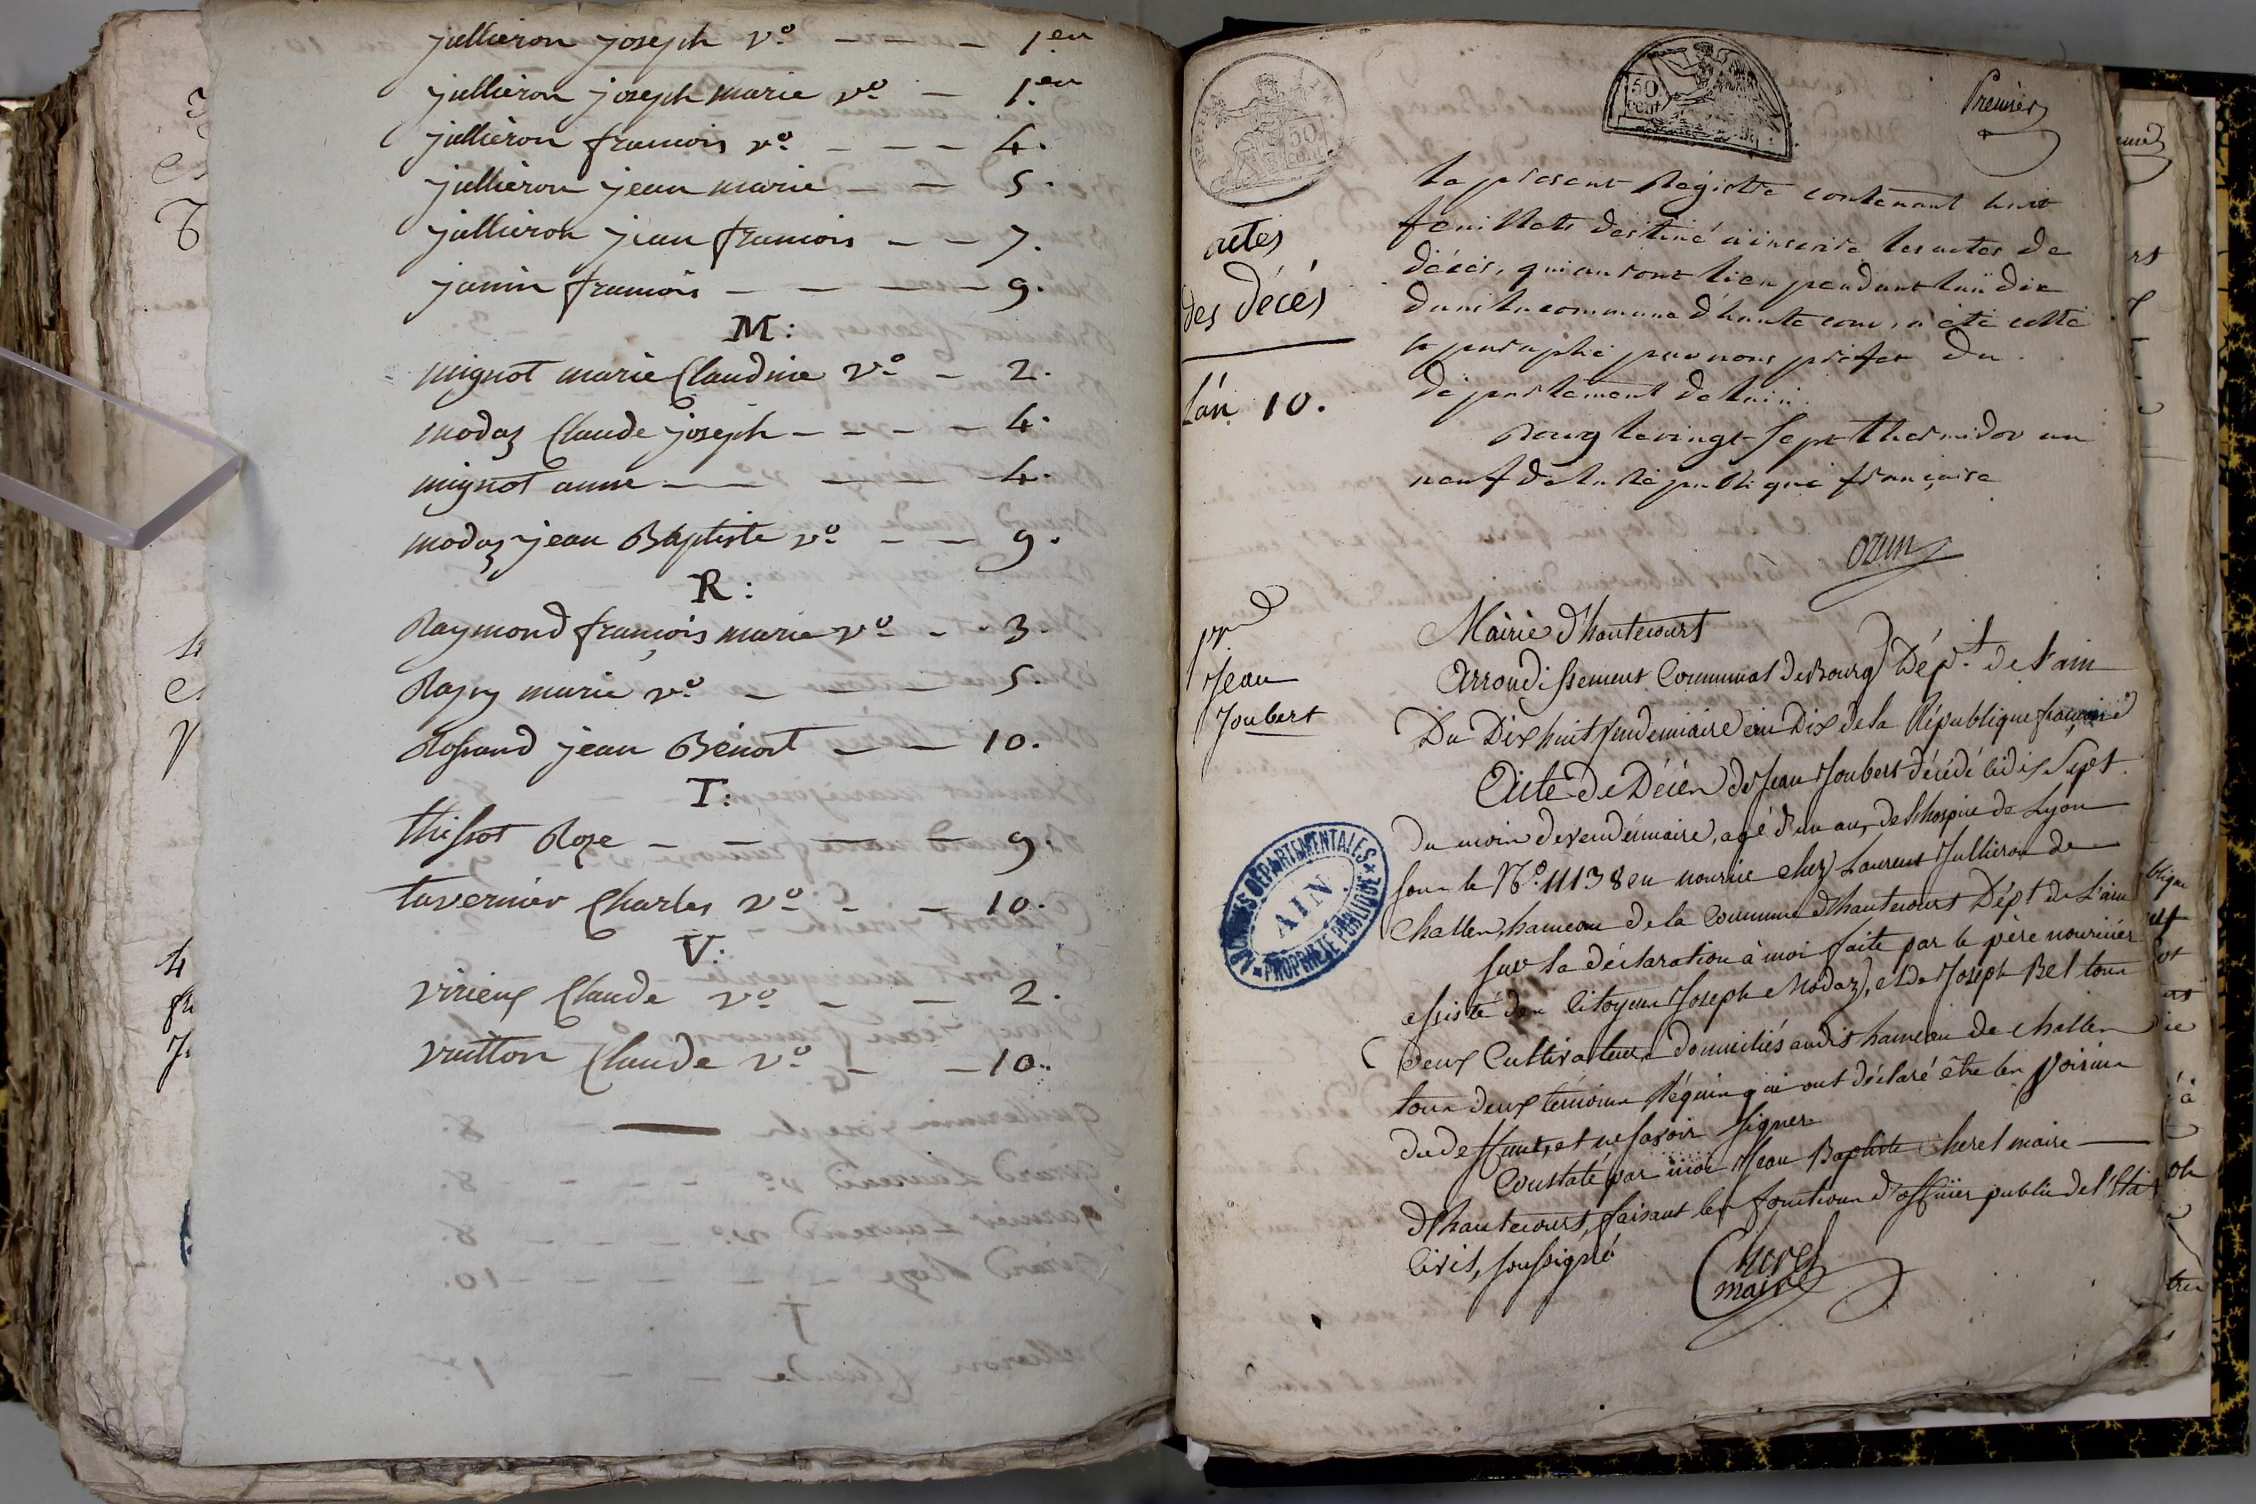 jullieron joseph vº - - - 1.er
jullieron joseph marie vº - 1.er
jullieron francois vº - - - 4.
jullieron jean marie - - 5.
jullieron jean francois - - 7.
janin francois - - - - 9.
M:
mignot marie Claudine vº - 2.
modaz Claude joseph - - - - 4.
mignot anne - - - - 4.
modaz jean Baptiste vº - - 9.
R:
Raymond françois marie vº - - 3.
marie vº - - - 5.
jean Benoit - - 10.
T:
thissot Roze - - - - - 9.
tavernier Charles vº - - 10.
V:
virieux Claude vº - - 2.
vuitton Claude vº - - 10.
50 cent
50 cent
Premier
actes
des décés
L'an 10.
Le present Registre contenant huit
feuillets destiné a inscrire les actes de
décès, qui auront lieu pendant l'an dix
dans la commune d'hautecour, a été cotté
et paraphé par nous préfet du
département de l'ain.
Bourg le vingt sept thermidor an
neuf de la République française
ozun
pr.
Jean
Joubert
Mairie d'hautecourt
Arrondissement Communal de Bourg Dép.t de l'ain
Du Dix huit vendemiaire an Dix de la République française
Acte de Décès de Jean Joubert décédé le dix sept
du mois de vendémiaire, agé d'un an, de l'hospice de Lyon
sous le Nº. 11138 en nourrice chez Laurent Jullieron de
Challes, hameau de la Commune d'hautecourt Dép.t de L'ain
sur la déclaration à moi faite par le père nouricier
assisté du Citoyen Joseph Modaz, et de Joseph Bel tous
deux Cultivateurs domiciliés audit hameau de challes
tous deux témoins Réquis qui ont déclaré être les voisins
du deffunt, et ne savoir signer
Constaté par moi Jean Baptiste Cherel maire
d'hautecourt, faisant les fonctions d'officier public de l'état
Civil, soussigné
Cherel
maire
ARCHIVES DÉPARTEMENTALES
AIN
PROPRIÉTÉ PUBLIQUE